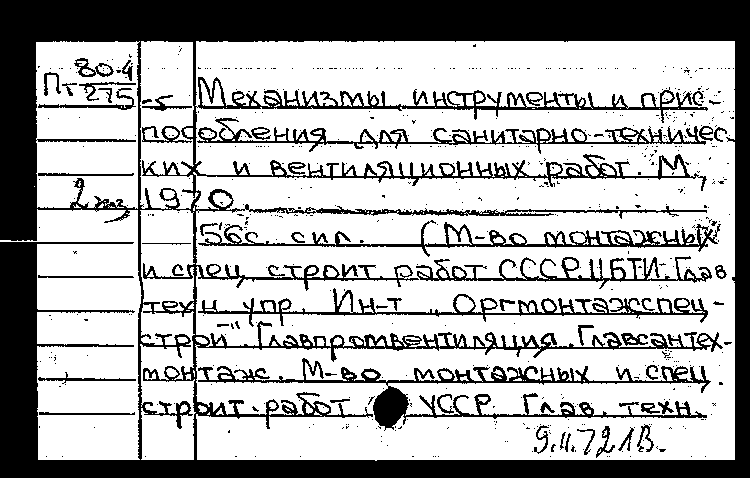 Пт 80-4
275 -5 Механизмы, инструменты и прис-
пособления для санитарно-техничес-
ких и вентиляционных работ. М.,
2 экз, 1970.
56с. с ил. (М-во монтажных
и спец. строит. работ СССР. ЦБТИ. Глав.
техн. упр. Ин-т "Оргмонтажспец-
строй". Главпромвентиляция. Главсантех-
монтаж. М-во монтажных и спец.
строит. работ УССР. Глав. техн.